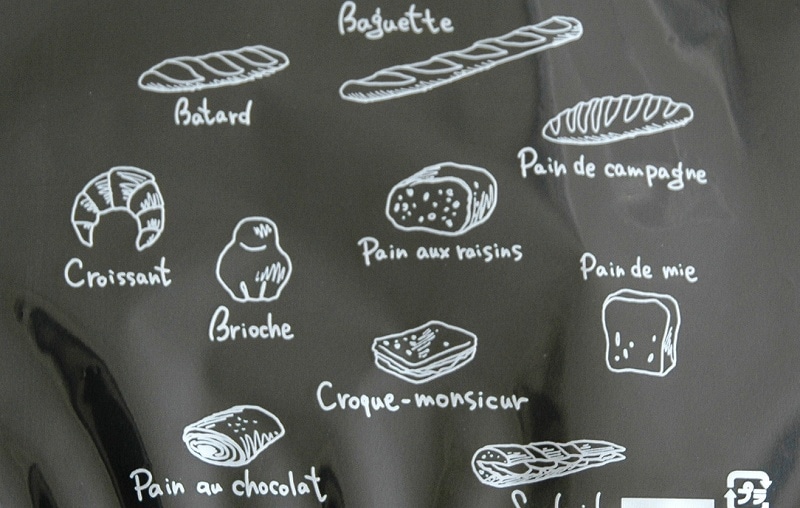 Baguette
Batard
Pain de campagne
Croissant
Pain aux raisins
Pain de mie
Brioche
Croque-monsieur
Pain au chocolat
プラ